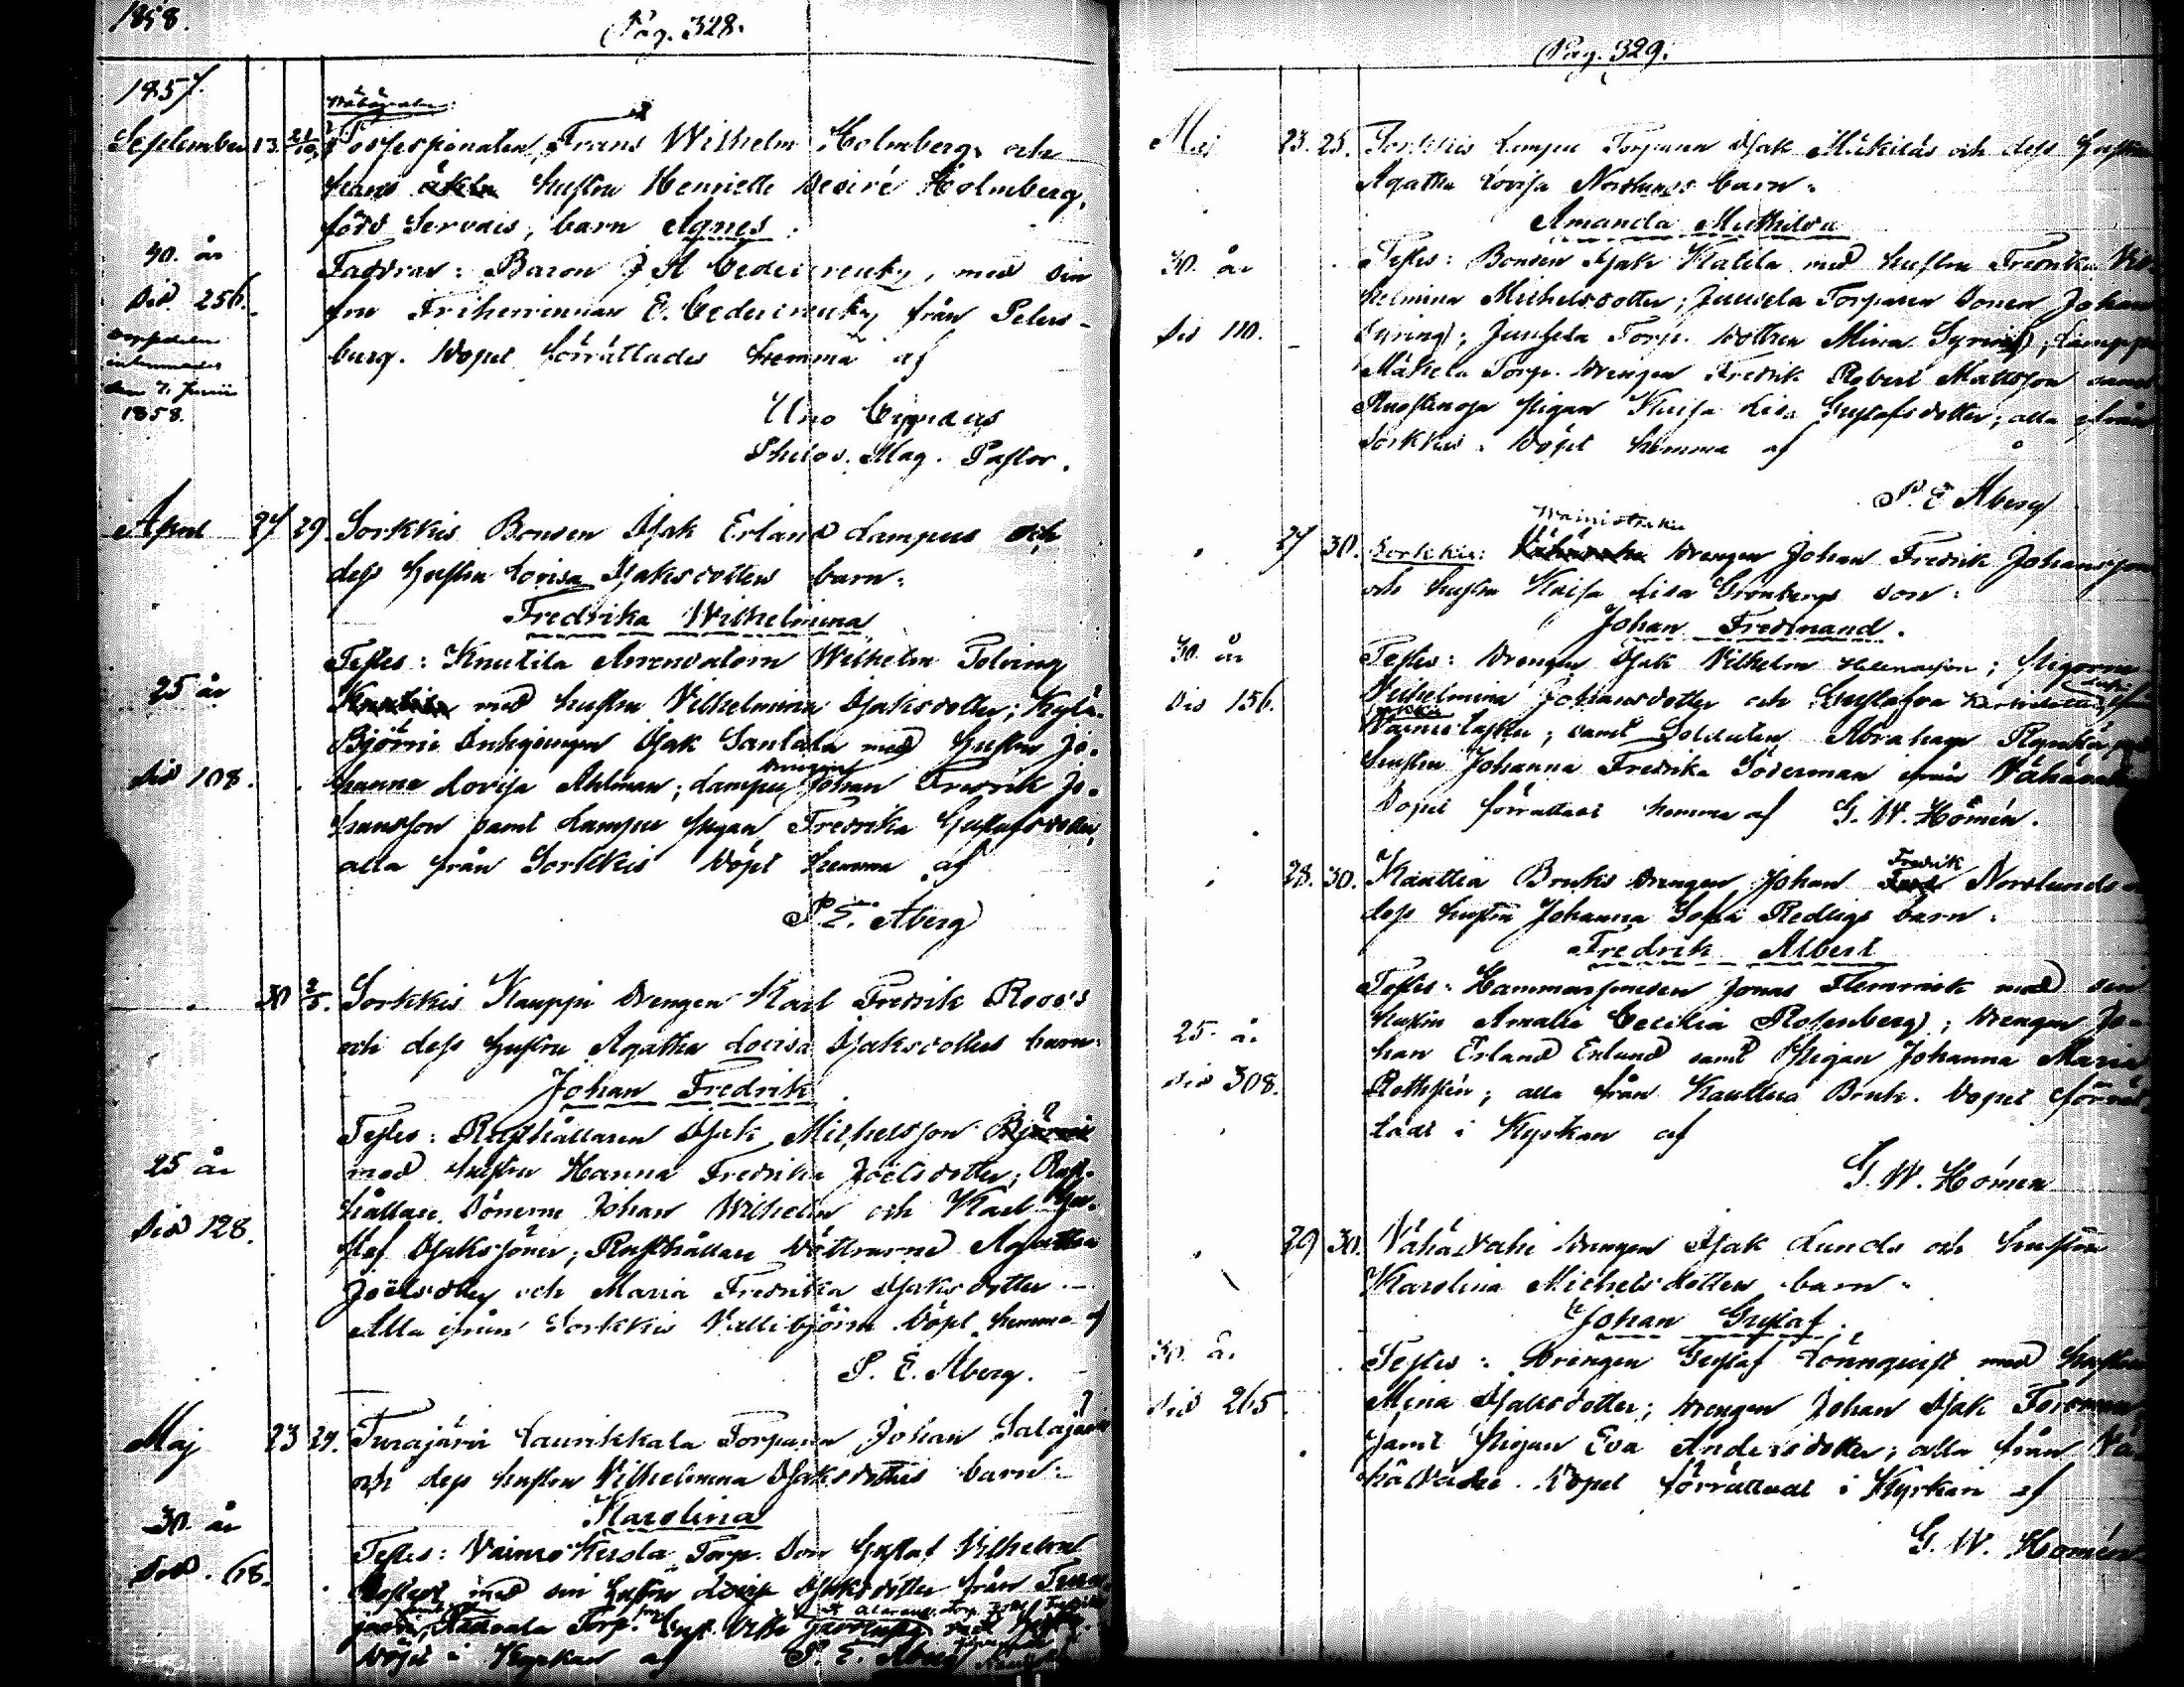 1858.
Pag. 328.
1857.
September 13 21/10 Possessionaten Frans Wilhelm Holmbergs och
hans äkta hustru Henriette Desiré Holmberg,
född Servais, barn Agnes.
40. år
Sid 256.
Faddrar: Baron J A Cedercreutz, med sin
fru Friherrinnan E. Cedercreutz från Peters-
burg. Döpet förrättades hemma af
den 7. Junii
1858.
Uno Cygnæus
Philos. Mag. Pastor.
April 27 29. Sorkkis Bonden Isak Erland Lampus och
dess hustru Lovisa Isaksdotters barn:
Fredrika Wilhelmina
25 år
Sid 108.
Testes: Knutila Arrendatorn Wilhelm Polving
med hustru Vilhelmina Isaksdotter; Kylä-
Björni Inhysingen Isak Santala med hustru Jo-
hanna Lovisa Ahlman; Lampu Drengen Johan Fredrik Jo-
hansson samt Lampu Pigan Fredrika Gustafsdotter,
alla från Sorkkis Döpt hemma af
P. E. Åberg
30 2/5. Sorkkis Kauppi Drengen Karl Fredrik Roos's
och dess hustru Agatha Lovisa Isaksdotters barn:
Johan Fredrik
25 år
Sid 128.
Testes: Rusthållaren Isak Michelsson Björni
med hustru Hanna Fredrika Joëlsdotter; Rust-
hållare Sönerne Johan Wilhelm och Karl Gu-
staf Isakssöner; Rusthållare Döttrarne Agatha
Joëlsdotter och Maria Fredrika Isaksdotter
Alla ifrån Sorkkis Vallibjörni Döpt hemma af
P. E. Åberg.
Maj 23 24. Turajärvi Laurikkala Torparen Johan
och dess hustru Vilhelmina Isaksdotters barn:
Karolina
30. år
Sid. 68.
Testes: Torp. Son Gustaf Vilhelm
med sin hustru Lovisa Isaksdotter från Tura-
järvi, Torp.
Döpt i Kyrkan af P. E. Åberg
Pag. 329.
Maj 23. 25. Sorkkis Lampu Torparen Isak Mickeläs och dess hustru
Agatha Lovisa Nordlunds barn:
Amanda Mathilda
30. år
Sid 110.
Testes: Bonden Isak Klatila med hustru Fredrika Vil-
helmina Michelsdotter; Juusela Torpare Sonen Johan
Syring; Juusela Torp. Dottren Mina Syring; Lampu
Mäkelä Torp. Drengen Fredrik Robert Mattsson samt
Ruostenoja Pigan Kaisa Lisa Gustafsdotter; alla ifrån
Sorkkis. Döpet hemma af
P. E. Åberg
27 30. Sorkkis: Drengen Johan Fredrik Johansson
och hustru Kaisa Lisa Grönbergs son:
Johan Ferdinand.
30 år
Sid 156.
Testes: Drengen Isak Vilhelm Helenasson; Pigorne
Vilhelmina Johansdotter och Gustafva
Vainiotasku; samt Soldaten Abraham
hustru Johanna Fredrika Söderman ifrån Vähävahe
Döpet förrättadt hemma af G. W. Homén.
28. 30. Kauttua Bruks Drengen Johan Fredrik Nordlunds o
dess hustru Johanna Sofia Redligs barn:
Fredrik Albert
25. år
Sid 308.
Testes: Hammarsmeden Jonas Flemmik med sin
hustru Amalia Cecilia Rosenberg; Drengen Jo-
han Erland Enlund samt Pigan Johanna Maria
Rothstén; alla från Kauttua Bruk. Döpet förrät-
tadt i Kyrkan af
G. W. Homén
29 30. Vähävahe Drengen Isak Lunds och hustru
Karolina Michelsdotters barn:
Johan Gustaf.
30. år
Sid 265
Testes: Drengen Gustaf Lönnqvist med hustru
Mina Isaksdotter; Drengen Johan Isak Forsman
samt Pigan Eva Andersdotter; alla från Vä-
hävahe. Döpet förrättadt i Kyrkan af
G. W. Homén